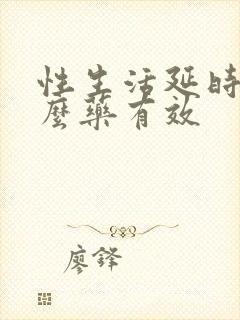 性生活延时
麼藥有效
廖鋒